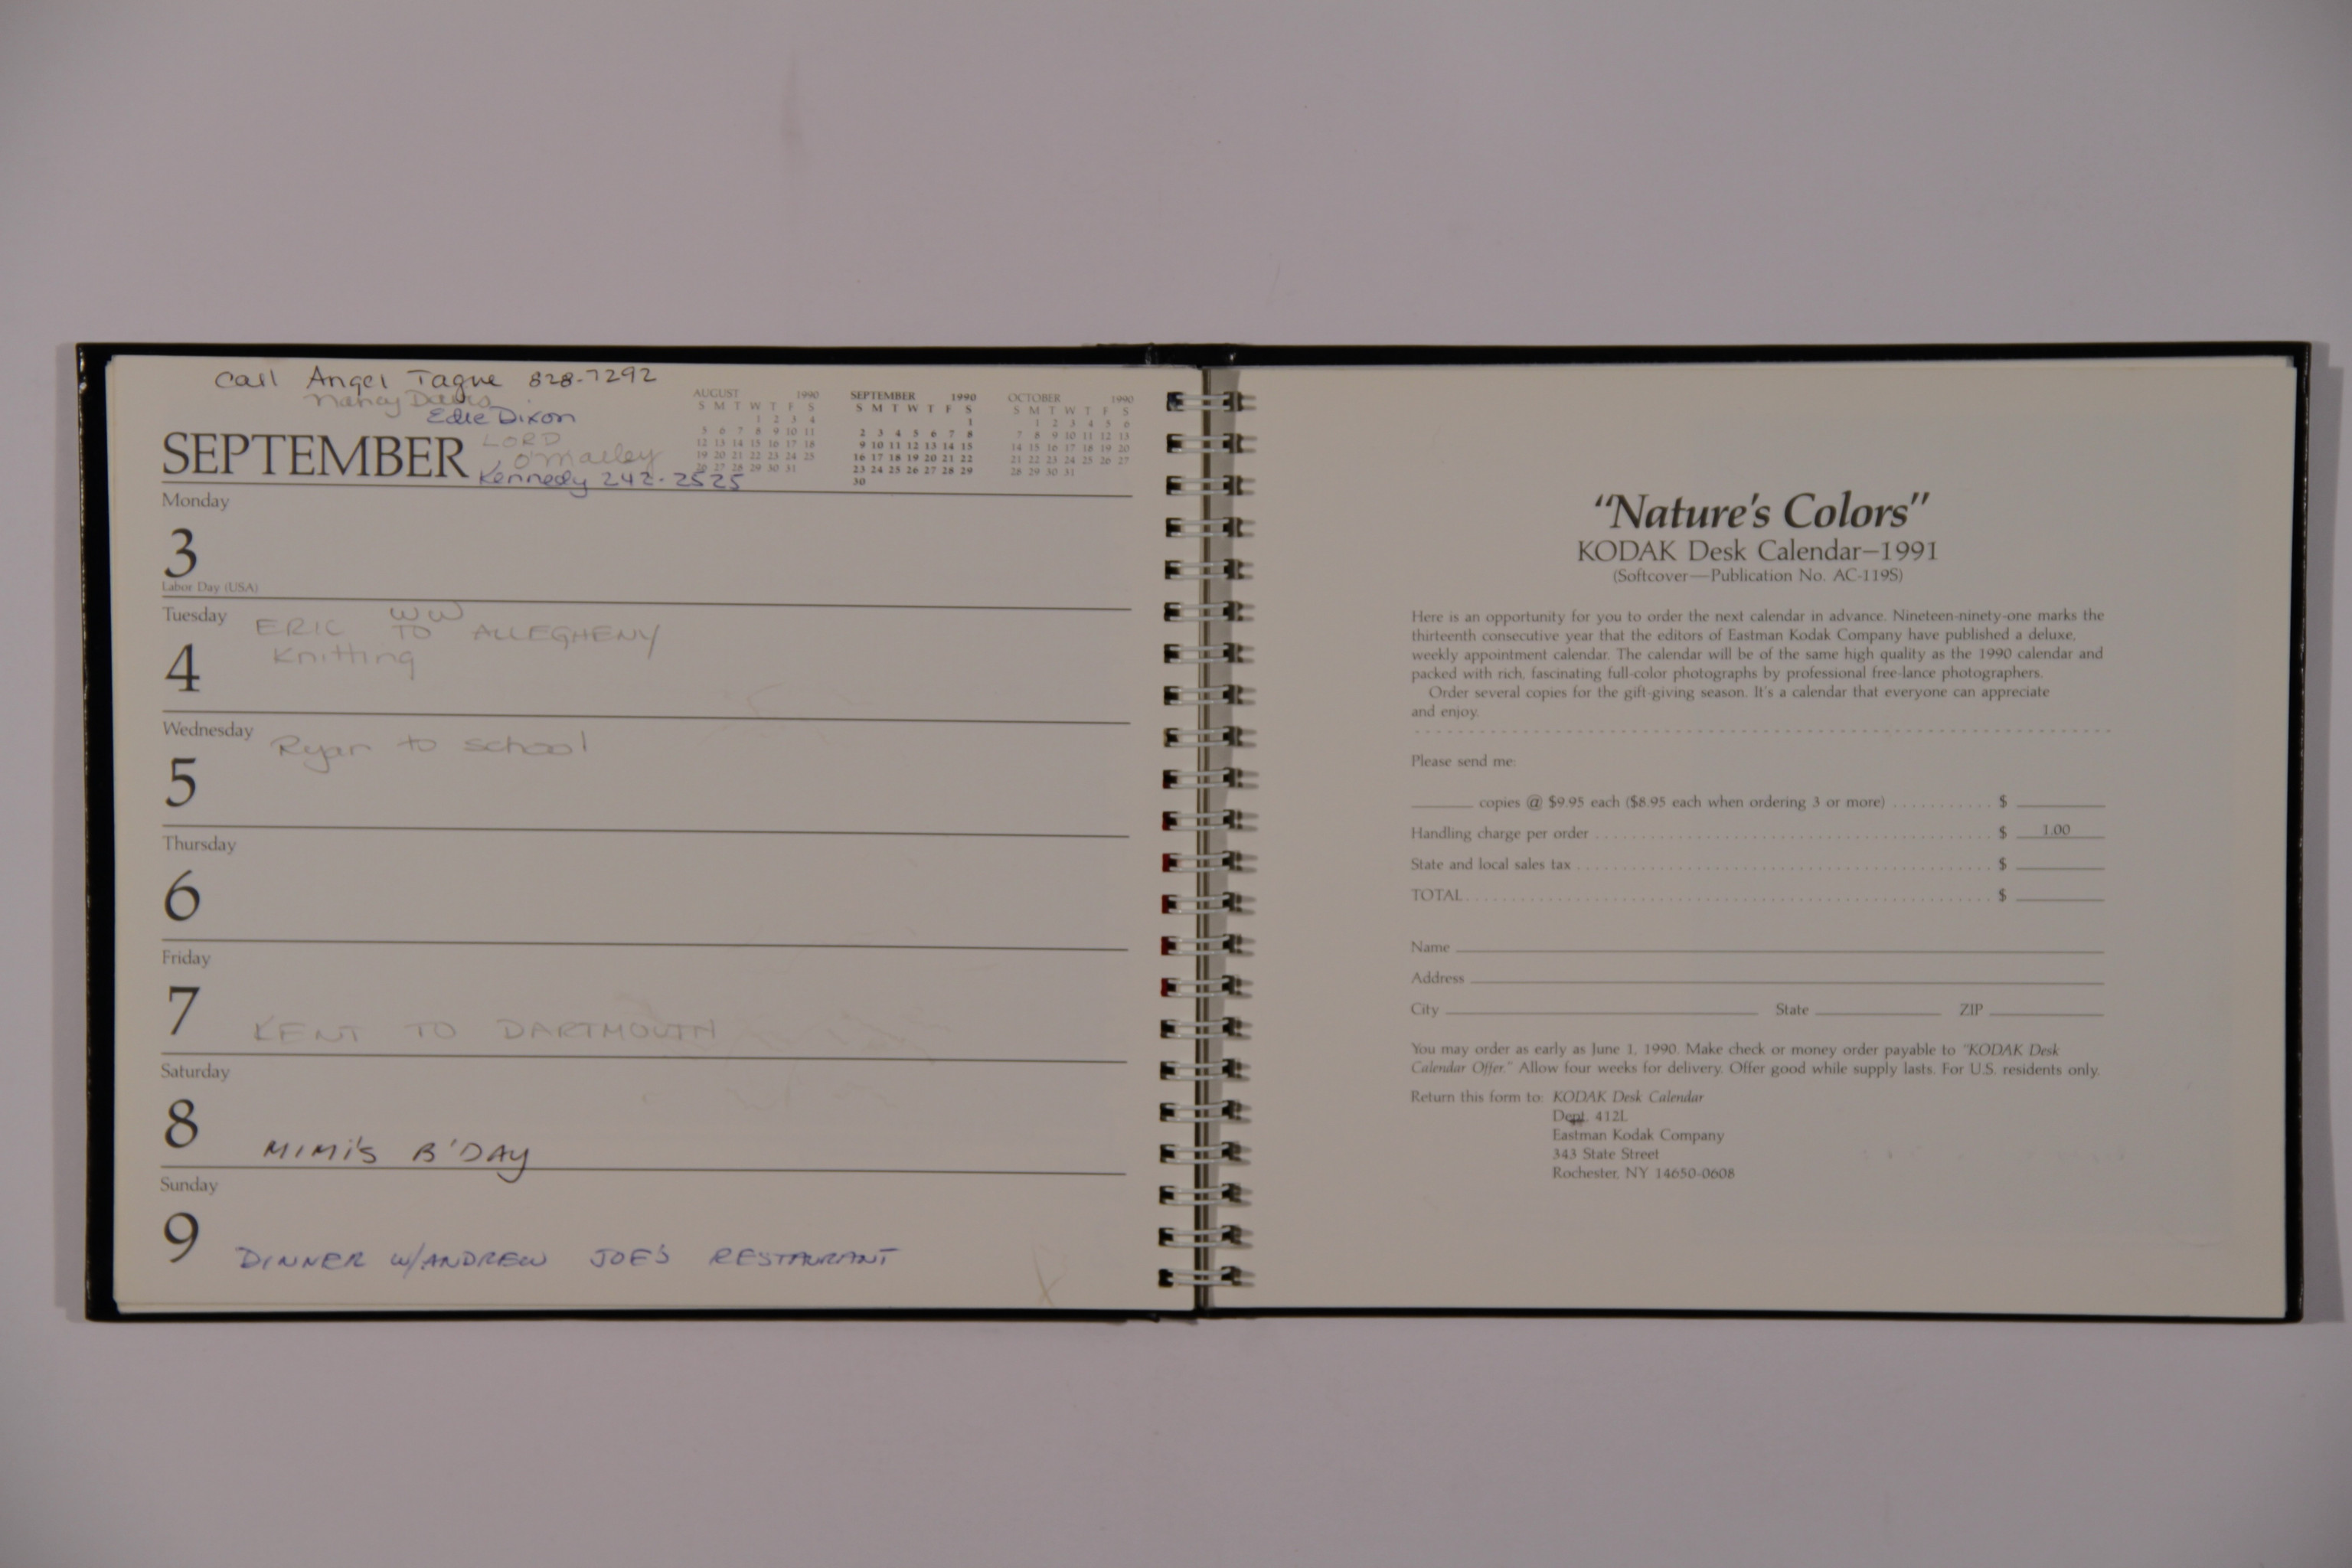 Call Angel Tague 828-7292
Nancy Davis
Edie Dixon
LORD
O'Malley
Kennedy 242-2525
AUGUST 1990
S M T W T F S
1 2 3 4
5 6 7 8 9 10 11
12 13 14 15 16 17 18
19 20 21 22 23 24 25
26 27 28 29 30 31
SEPTEMBER 1990
S M T W T F S
1
2 3 4 5 6 7 8
9 10 11 12 13 14 15
16 17 18 19 20 21 22
23 24 25 26 27 28 29
30
OCTOBER 1990
S M T W T F S
1 2 3 4 5 6
7 8 9 10 11 12 13
14 15 16 17 18 19 20
21 22 23 24 25 26 27
28 29 30 31
SEPTEMBER
Monday
3
Labor Day (USA)
Tuesday
WW
ERIC TO ALLEGHENY
Knitting
4
Wednesday
Ryan to school
5
Thursday
6
Friday
7
KENT TO DARTMOUTH
Saturday
8
MIMI'S B'DAY
Sunday
9
DINNER W/ANDREW JOE'S RESTAURANT
"Nature's Colors"
KODAK Desk Calendar—1991
(Softcover—Publication No. AC-119S)
Here is an opportunity for you to order the next calendar in advance. Nineteen-ninety-one marks the
thirteenth consecutive year that the editors of Eastman Kodak Company have published a deluxe,
weekly appointment calendar. The calendar will be of the same high quality as the 1990 calendar and
packed with rich, fascinating full-color photographs by professional free-lance photographers.
Order several copies for the gift-giving season. It's a calendar that everyone can appreciate
and enjoy.
Please send me:
copies @ $9.95 each ($8.95 each when ordering 3 or more) $
Handling charge per order $ 1.00
State and local sales tax $
TOTAL $
Name
Address
City State ZIP
You may order as early as June 1, 1990. Make check or money order payable to "KODAK Desk
Calendar Offer." Allow four weeks for delivery. Offer good while supply lasts. For U.S. residents only.
Return this form to: KODAK Desk Calendar
Dept. 412L
Eastman Kodak Company
343 State Street
Rochester, NY 14650-0608